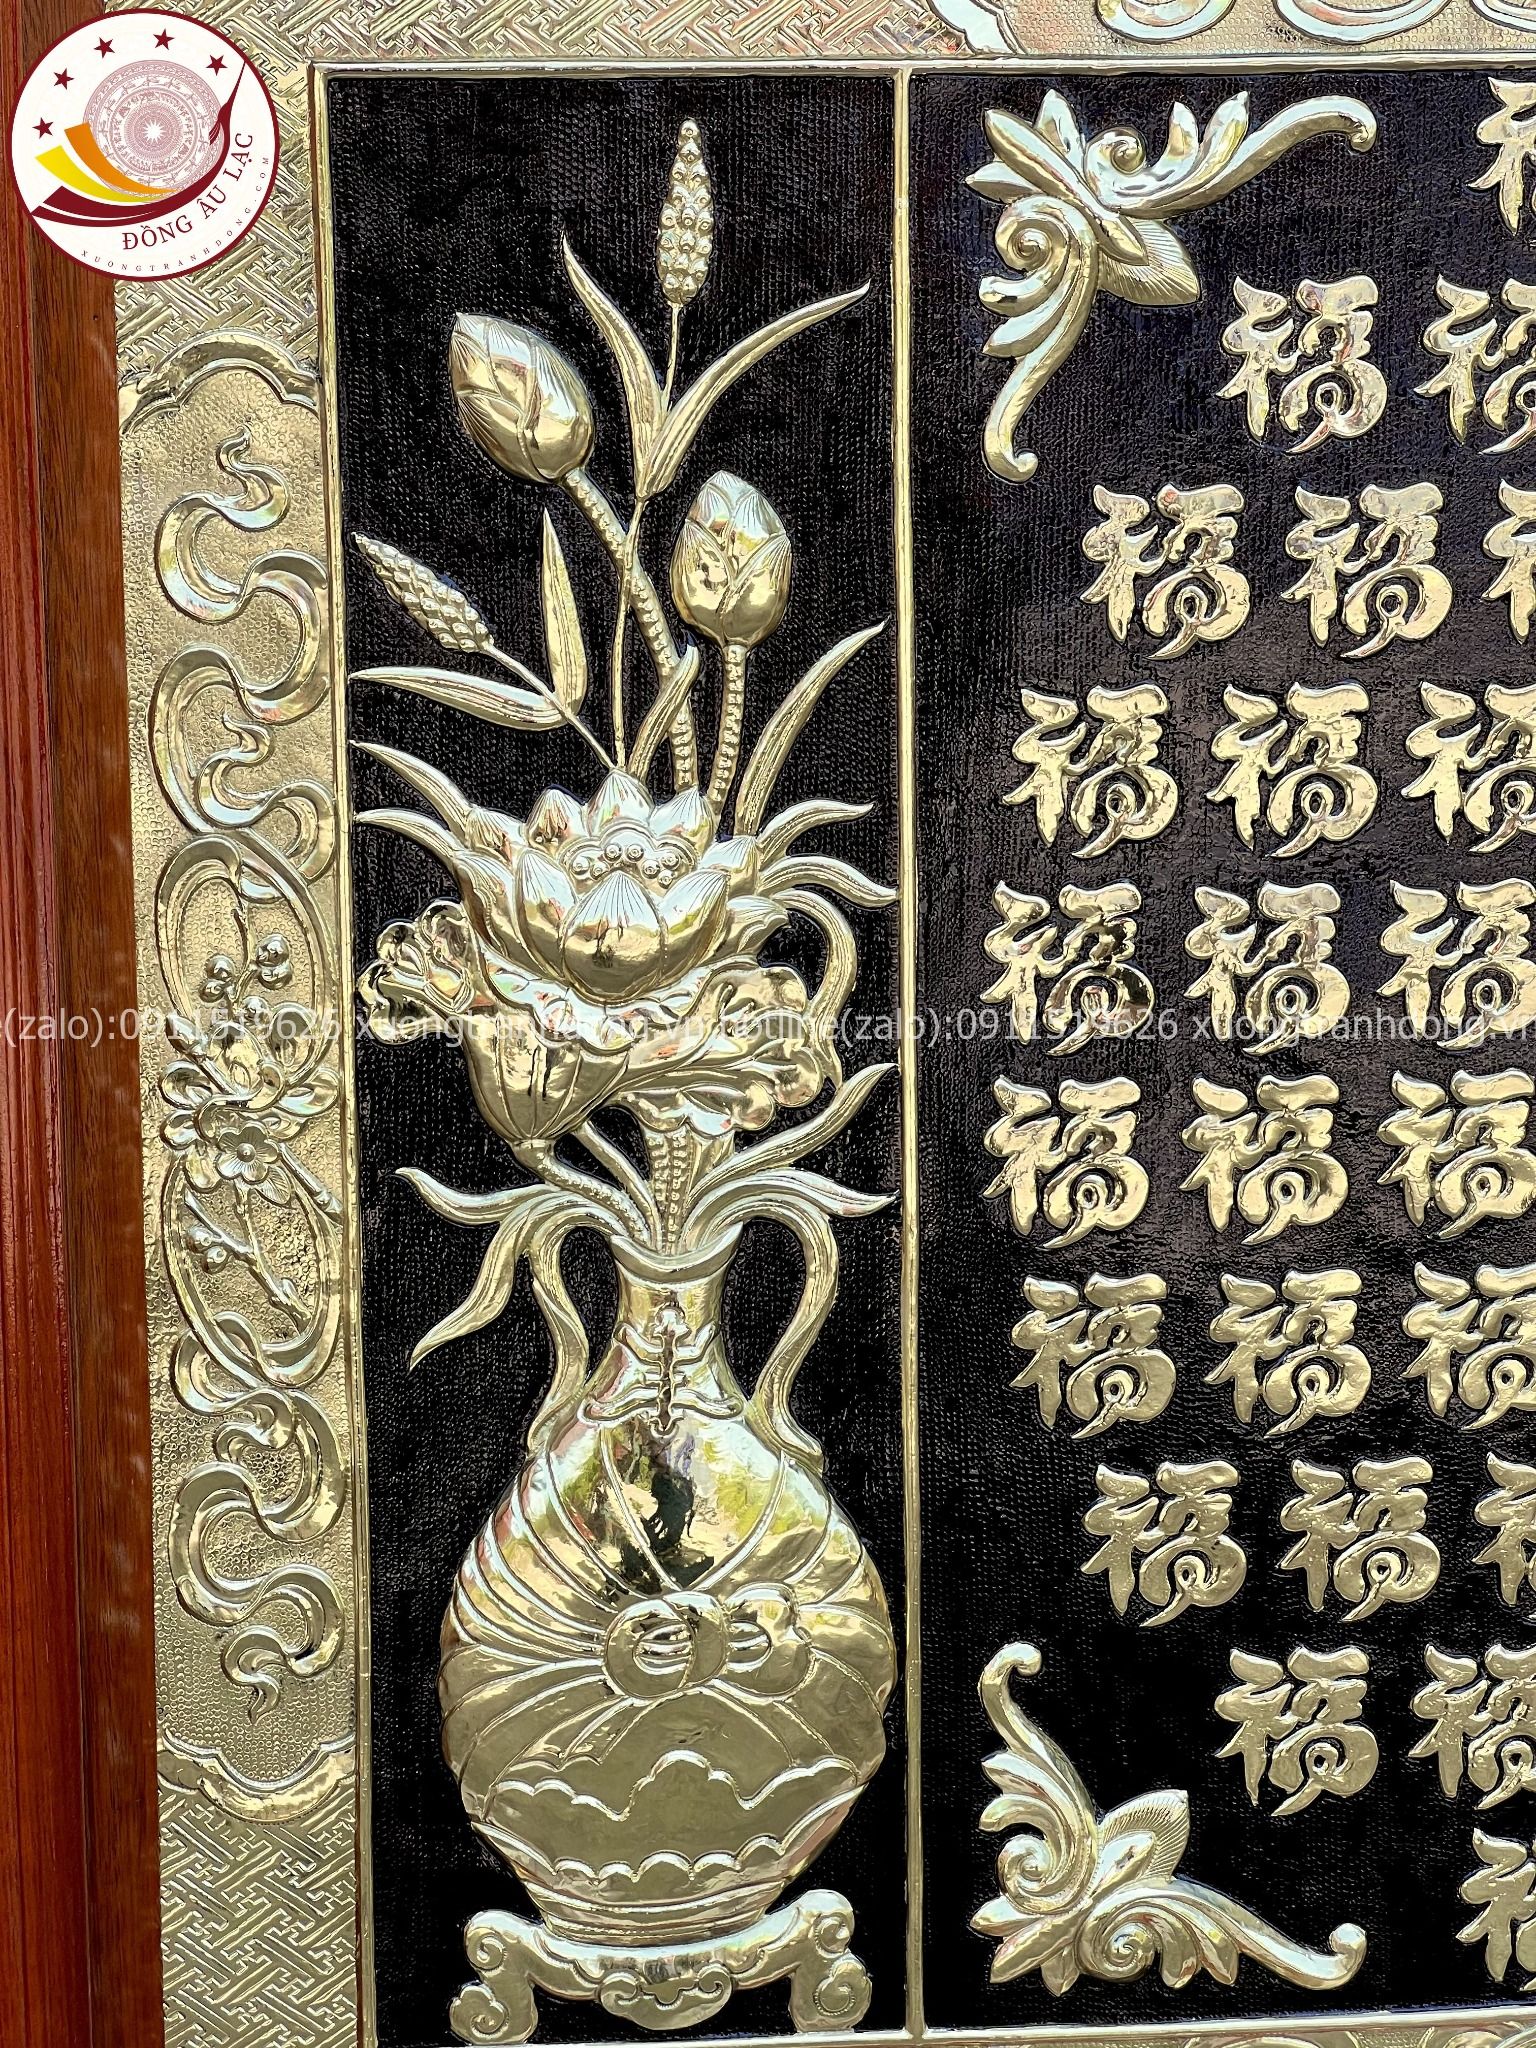 ĐỒNG ÂU LẠC
XUONGTRANHDONG.COM
福
福 福
福 福 福
福 福 福
福 福 福
福 福 福
福 福 福
福 福 福
福 福
福
e(zalo):0911519626 xuongtranhdong.vn hotline(zalo):0911519626 xuongtranhdong.vn